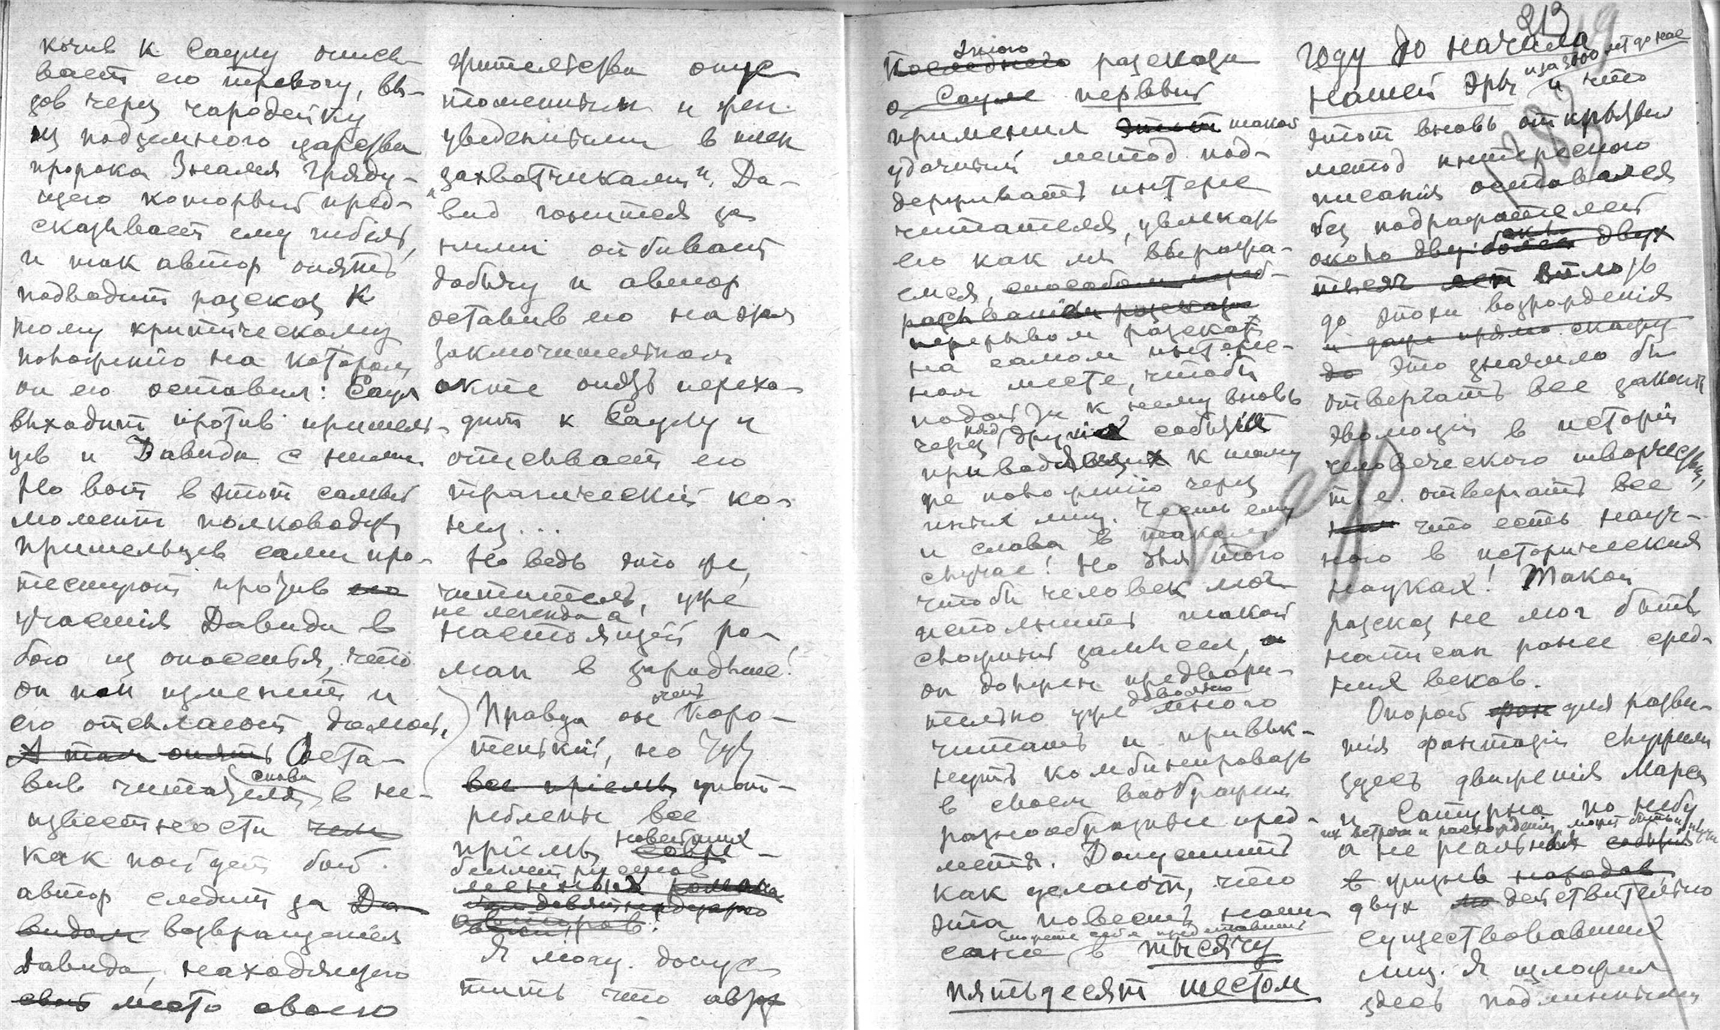 кочив к Саулу описы-
вает его тревогу, вы-
зов через чародейку
из подземного царства
пророка Знамя Гряду-
щего который пред-
сказывает ему гибель,
и так автор опять
подводит разсказ к
тому критическому
положению на котором
он его оставил: Саул
выходит против пришель-
цев и Давид с ними
Но вот в этот самый
момент полководцы
пришельцев сами про-
тестуют против его
участия Давида в
бою из опасения, что
он им изменит и
его отсылают домой,
А там опять Оста-
вив читателя снова в не-
известности чем
как пойдет бой.
автор следит за Да-
видом возвращения
Давида, находящего
свой место своего
жительства опус-
тошенным и жен
уведенными в плен
"захватчиками". Да-
вид гонится за
ними отбивает
добычу и автор
оставив его на этом
заключительном
акте опять перехо-
дит к Саулу и
описывает его
трагический ко-
нец...
Но ведь это же,
читатель, уже
не легенда а
настоящий ро-
ман в зародыше!
Правда он очень коро-
тенький, но тут
все приемы упот-
реблены все
приемы новейших
беллетристов
романа
девятнадцатого
авторов.
Я могу допус-
тить что автор
213
Последнего этого разсказа
о Сауле первый
применил этот такой
удачный метод под-
держивать интерес
читателя, увлекать
его как мы выража-
емся,
перерывом разсказа
на самом интерес-
ном месте, чтобы
подойти к нему вновь
через ряд других событий
приводящих к тому
же положению через
иных лиц. Честь ему
и слава в таком
случае! Но для того
чтобы человек мог
исполнить такой
сложный замысел, а
он должен предвари-
тельно уже довольно много
читать и привык-
нуть комбинировать
в своем воображении
разнообразные пред-
меты. Допустить
как делают, что
эта повесть напи-
сана в тысячу
пятьдесят шестом
году до начала
нашей эры и за 3000 лет до нас и что
этот вновь открытый
метод интересного
писания оставался
без подражателей
около двух
тысяч лет вплоть
до эпохи возрождения
и даже прямо скажу
до Это значило бы
отвергать все законы
эволюции в истории
человеческого творчества,
т. е. отвергать все
что есть науч-
ного в исторических
науках! Такой
разсказ не мог быть
написан ранее сред-
них веков.
Опорой для разви-
тия фантазии служили
здесь движения Марса
и Сатурна по небу
их встречи и расхождения, может быть и лучи
а не реальных события
в жизни народов
двух действительно
существовавших
лиц. Я изложил
здесь подлинными